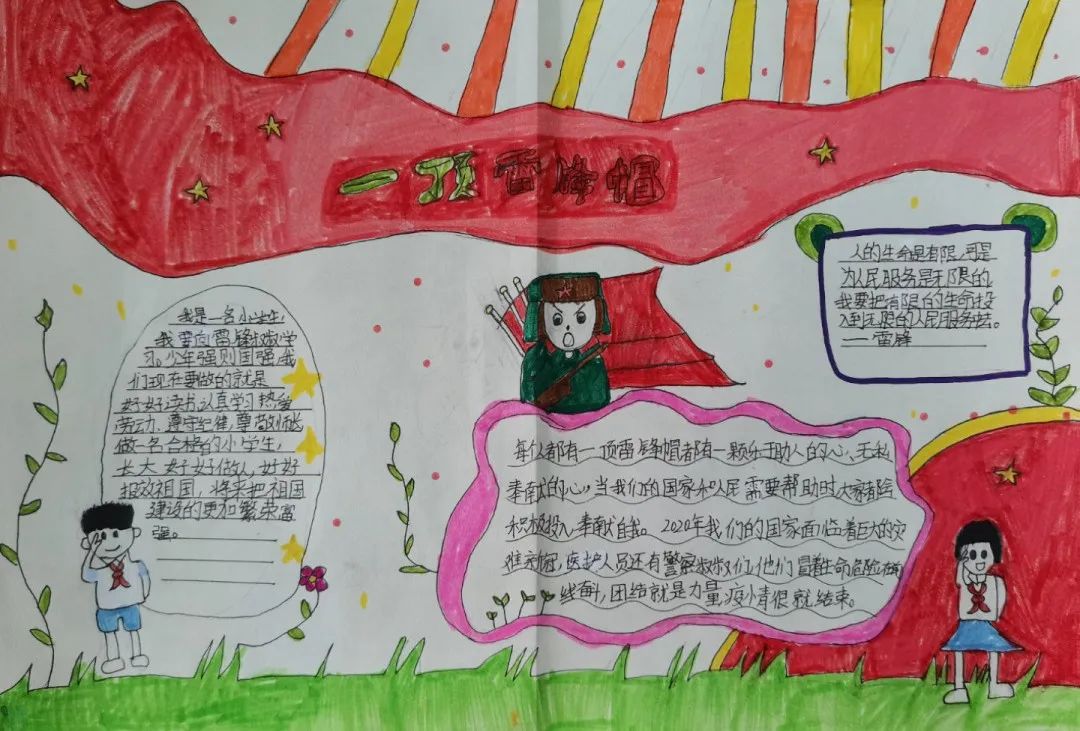 一顶雷锋帽
我是一名小学生，
我要向雷锋叔叔学
习。少年强则国强，我
们现在要做的就是
好好读书，认真学习，热爱
劳动、遵守纪律，尊敬师长
做一名合格的小学生，
长大好好做人，好好
报效祖国，将来把祖国
建设的更加繁荣富
强。
人的生命是有限，可是
为人民服务是无限的，
我要把有限的生命投
入到无限的人民服务去。
——雷锋
每个人都有一顶雷锋帽都有一颗乐于助人的心、无私
奉献的心，当我们的国家和人民需要帮助时大家都会
积极投入、奉献自我。2020年我们的国家面临着巨大的灾
难新冠，医护人员还有警察叔叔们，他们冒着生命危险在
线奋斗，团结就是力量，疫情很就结束。